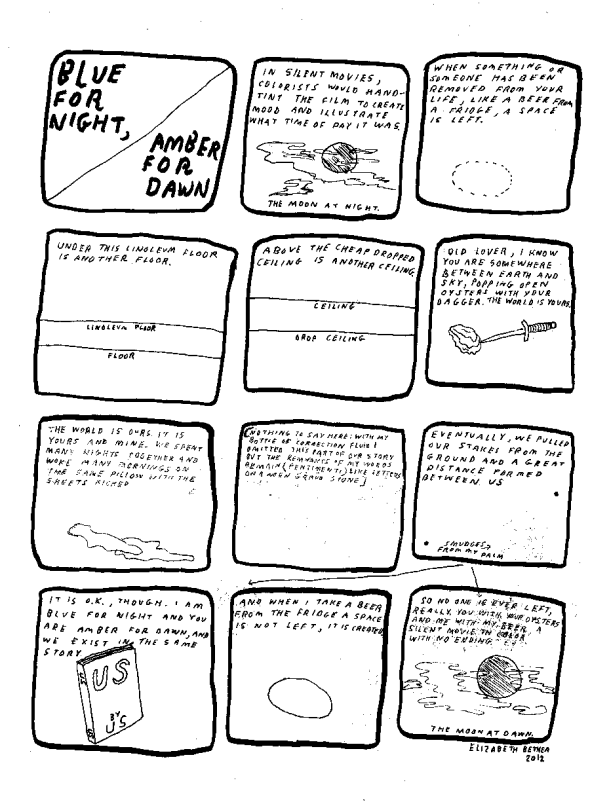 BLUE
FOR
NIGHT,
AMBER
FOR
DAWN
IN SILENT MOVIES,
COLORISTS WOULD HAND-
TINT THE FILM TO CREATE
MOOD AND ILLUSTRATE
WHAT TIME OF DAY IT WAS.
THE MOON AT NIGHT.
WHEN SOMETHING OR
SOMEONE HAS BEEN
REMOVED FROM YOUR
LIFE, LIKE A BEER FROM
A FRIDGE, A SPACE
IS LEFT.
UNDER THIS LINOLEUM FLOOR
IS ANOTHER FLOOR.
LINOLEUM FLOOR
FLOOR
ABOVE THE CHEAP DROPPED
CEILING IS ANOTHER CEILING.
CEILING
DROP CEILING
OLD LOVER, I KNOW
YOU ARE SOMEWHERE
BETWEEN EARTH AND
SKY, POPPING OPEN
OYSTERS WITH YOUR
DAGGER. THE WORLD IS YOURS.
THE WORLD IS OURS. IT IS
YOURS AND MINE. WE SPENT
MANY NIGHTS TOGETHER AND
WOKE MANY MORNINGS ON
THE SAME PILLOW WITH THE
SHEETS KICKED
[NOTHING TO SAY HERE: WITH MY
BOTTLE OF CORRECTION FLUID I
OMITTED THIS PART OF OUR STORY
BUT THE REMNANTS OF MY WORDS
REMAIN (PENTIMENTI) LIKE LETTERS
ON A WORN GRAVE STONE]
EVENTUALLY, WE PULLED
OUR STAKES FROM THE
GROUND AND A GREAT
DISTANCE FORMED
BETWEEN US
SMUDGES
FROM MY PALM
IT IS O.K., THOUGH. I AM
BLUE FOR NIGHT AND YOU
ARE AMBER FOR DAWN, AND
WE EXIST IN THE SAME
STORY.
US
US
BY
US
AND WHEN I TAKE A BEER
FROM THE FRIDGE A SPACE
IS NOT LEFT, IT IS CREATED
SO NO ONE IS EVER LEFT,
REALLY. YOU WITH YOUR OYSTERS
AND ME WITH MY BEER, A
SILENT MOVIE IN COLOR
WITH NO ENDING.
THE MOON AT DAWN.
ELIZABETH BETHEA
2012